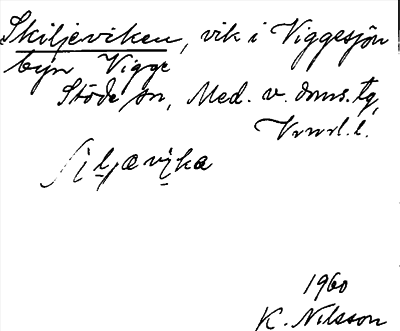 Skiljeviken, vik i Viggesjön
byn Vigge
Stöde sn, Med. v. doms. tg,
Vrnrl. l.
ʃiljavika
1960
K. Nilsson